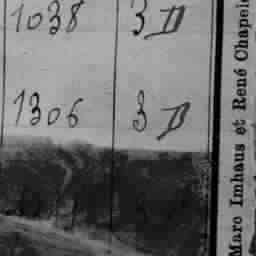 1038 3 D
1306 3 D
Marc Imhaus et René Chapelo